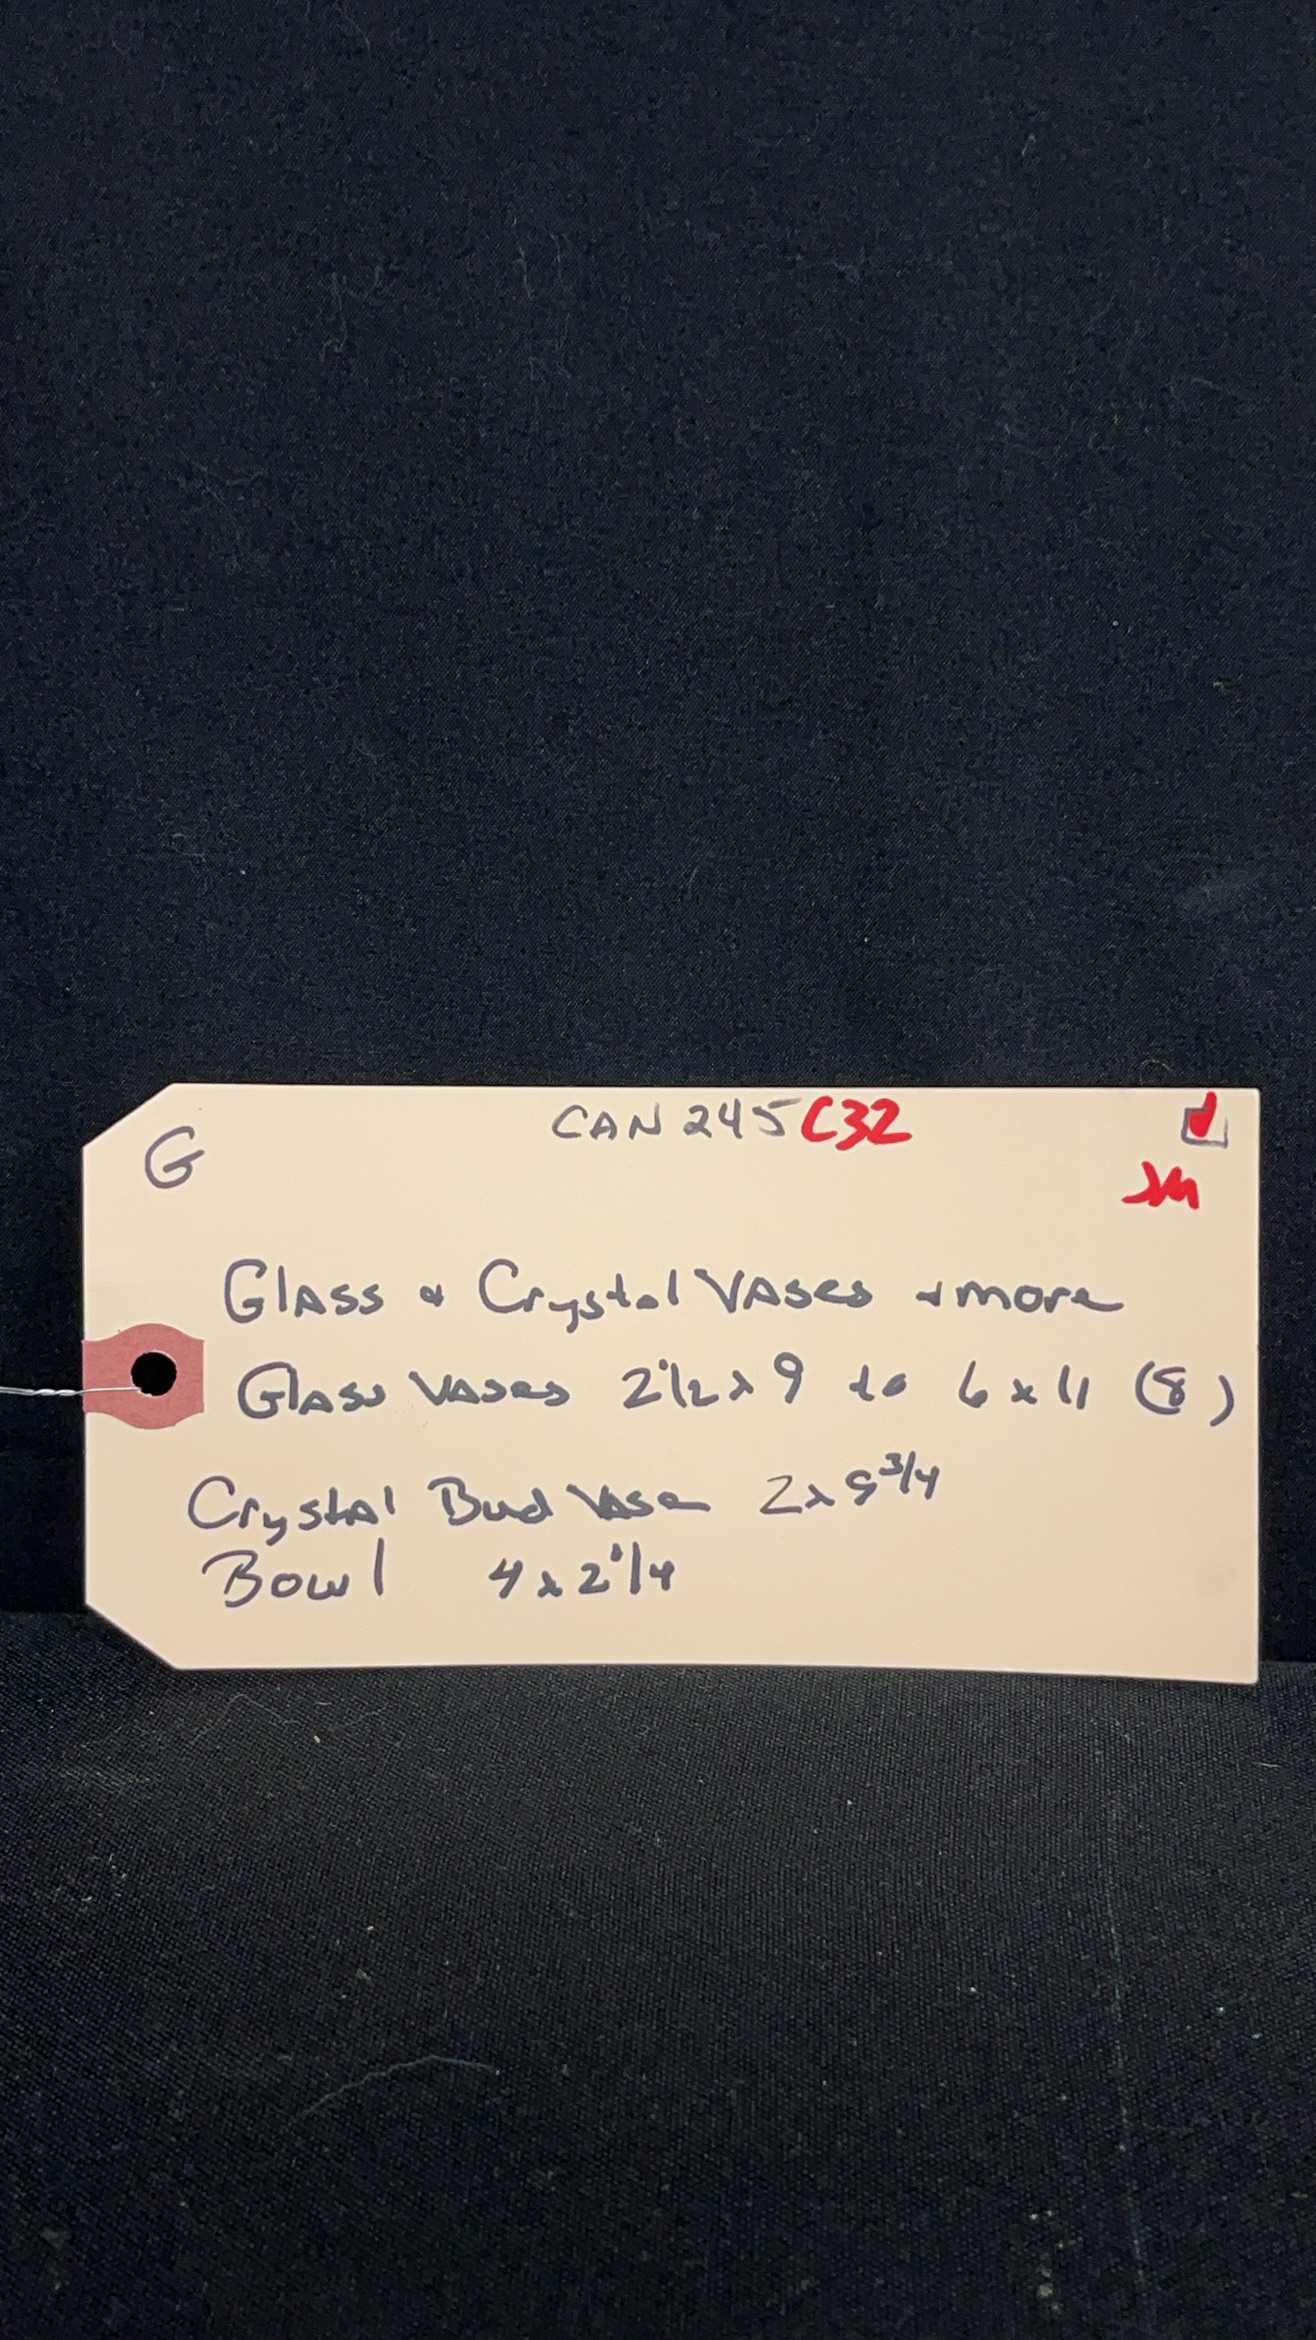 G CAN 245 C32
JM
Glass & Crystal Vases & more
Glass Vases 2 1/2 x 9 to 6 x 11 (8)
Crystal Bud Vase 2 x 5 3/4
Bowl 4 x 2 1/4